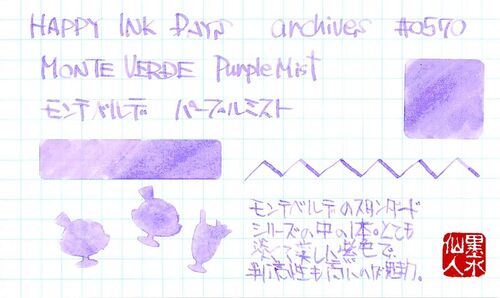 HAPPY INK DAYS archives #0570
MONTE VERDE Purple Mist
モンテベルデ パープルミスト
モンテベルデのスタンダード
シリーズの中の1本。とても
淡くて美しい紫色で、
判読性も高いのが魅力。
墨水
仙人